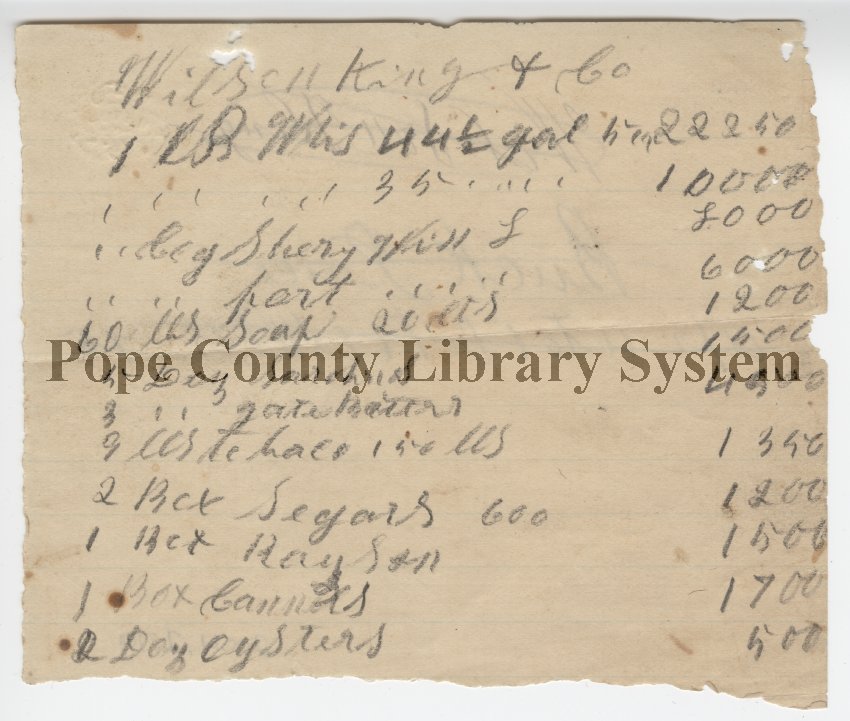 Wilson King & Co
1 Whis 44½ gal 5 22250
" " " " 35 " " " " 10000
" Ceg Shery Win £ 8000
" " " port " " " " 6000
60 lbs Soap 20 cts 1200
5 Doz Sardins 1500
3 " " gate Bitters 4500
9 lbs tobaco 150 lbs 1350
2 Box Segars 600 1200
1 Box Raysen 1500
1 Box Cannols 1700
2 Doz Oysters 500
Pope County Library System